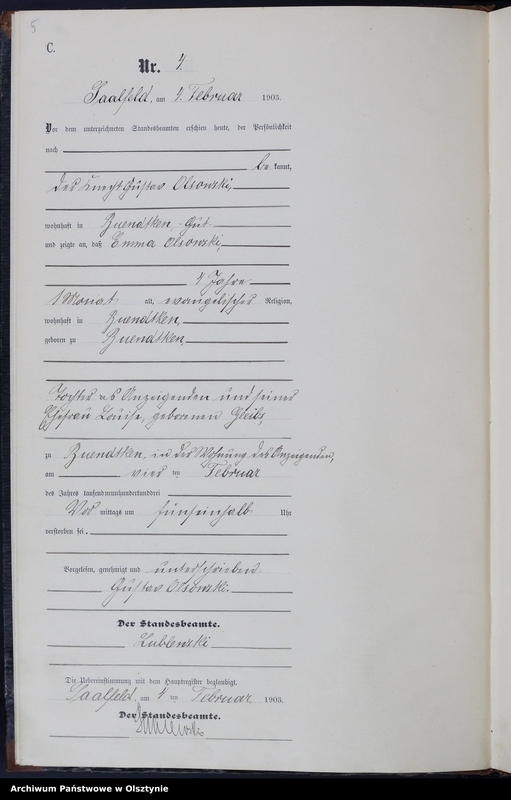 5
C.
Nr. 4.
Saalfeld, am 4. Februar 1903.
Vor dem unterzeichneten Standesbeamten erschien heute, der Persönlichkeit
nach
be kannt,
der Knecht Gustav Olsowski,
wohnhaft in Zuendtken Gut
und zeigte an, daß Emma Olsowski,
4 Jahre
1 Monat alt, evangelischer Religion,
wohnhaft in Zuendtken,
geboren zu Zuendtken,
Tochter des Anzeigenden und seiner
Ehefrau Louise, geborenen
zu Zuendtken, in der Wohnung des Anzeigenden,
am vier ten Februar
des Jahres tausendneunhundertunddrei
Vor mittags um fünfeinhalb Uhr
verstorben sei.
Vorgelesen, genehmigt und unterschrieben
Gustav Olsowski.
Der Standesbeamte.
Lublenski
Die Uebereinstimmung mit dem Hauptregister beglaubigt.
Saalfeld, am 4 ten Februar 1903.
Der Standesbeamte.
Archiwum Państwowe w Olsztynie